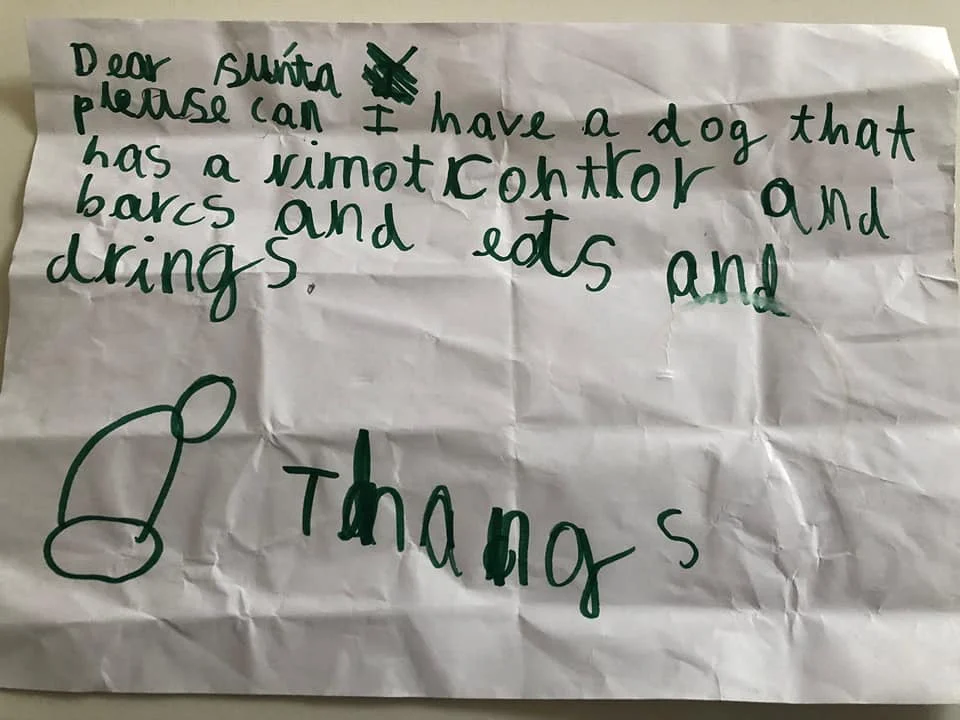 Dear sunta
pleuse can I have a dog that
has a rimot contror and
barcs and eats and
drings.
Thangs